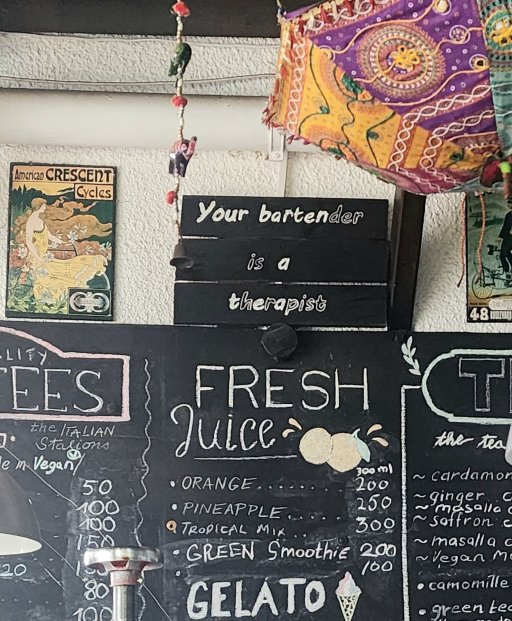 American CRESCENT
Cycles
Your bartender
is a
therapist
48
LIFY
EES
the ITALIAN
Stallions
in Vegan
50
100
100
80
100
20
FRESH
Juice
300ml
• ORANGE....... 200
• PINEAPPLE..... 250
• TROPICAL MIX... 300
• GREEN Smoothie 200
• 100
GELATO
the tea
~ cardamon
~ ginger
~ masala
~ saffron
~ masalla
~ Vegan
• camomille
• green tea